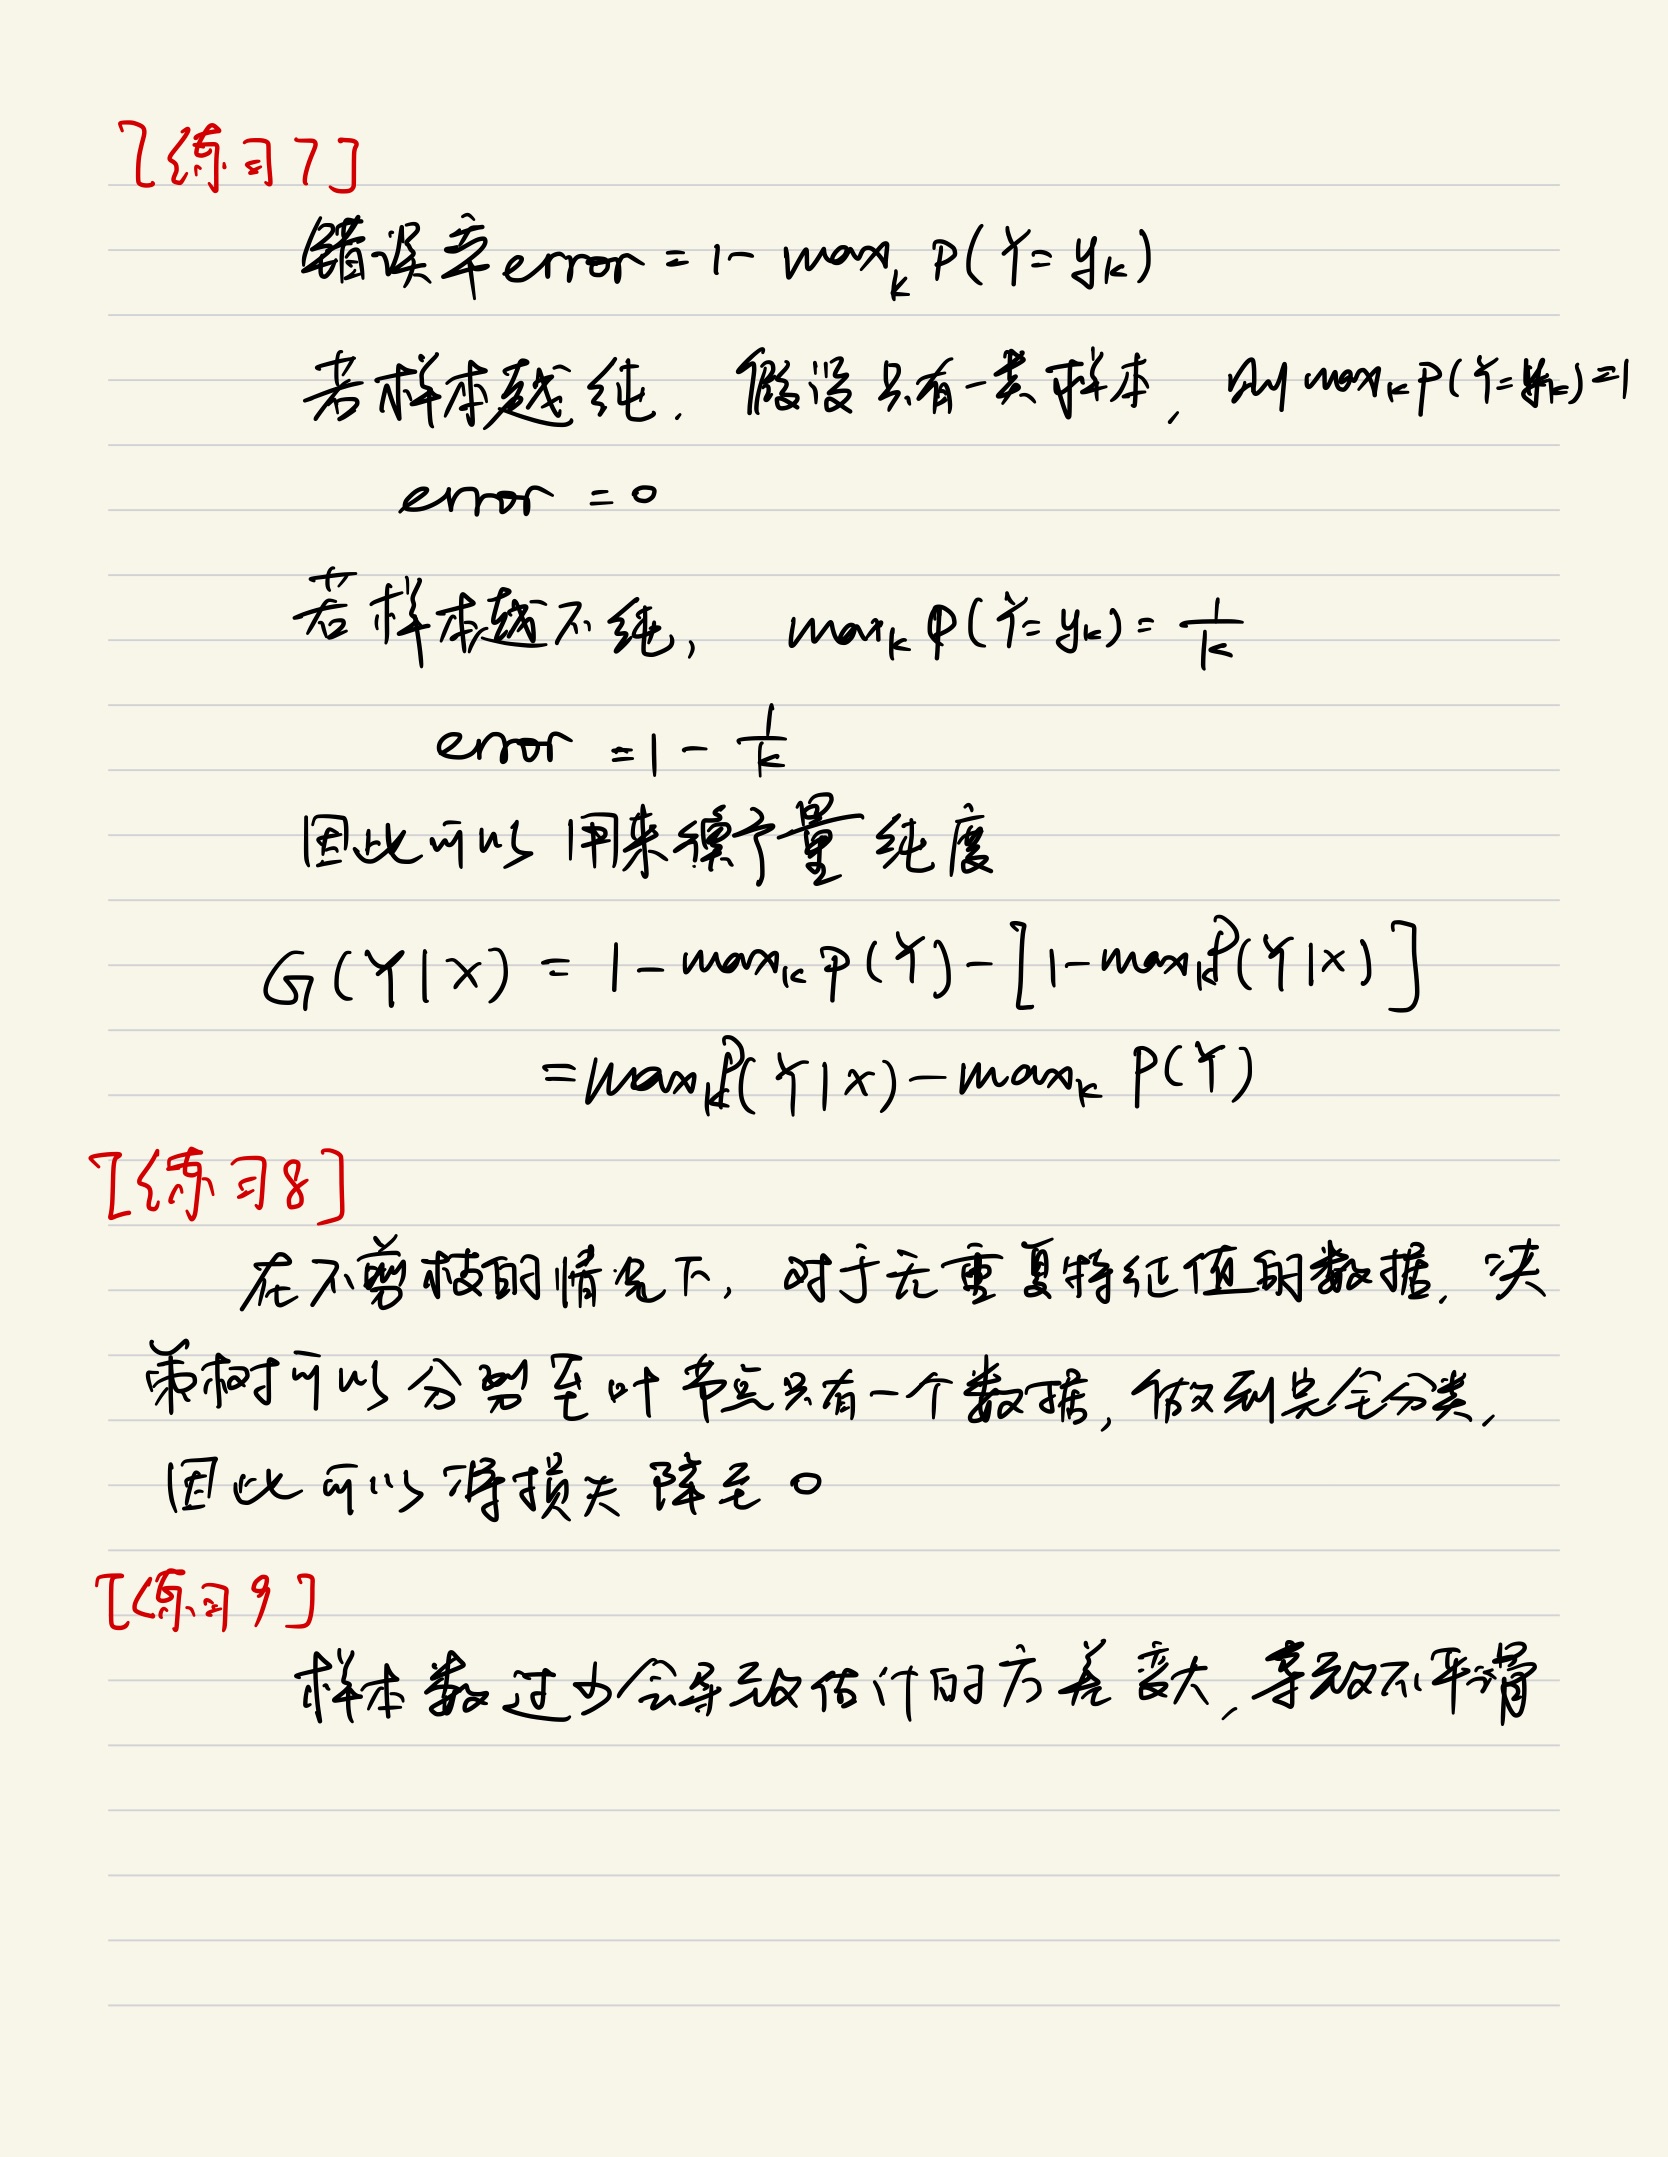 [练习7]
错误率error = 1 - max_k P(Y=y_k)
若样本越纯. 假设只有一类样本, 则 max_k P(Y=y_k)=1
error = 0
若样本越不纯, max_k P(Y=y_k) = 1/k
error = 1 - 1/k
因此可以用来衡量纯度
G(Y|X) = 1-max_k P(Y) - [1-max_k P(Y|X)]
= max_k P(Y|X) - max_k P(Y)
[练习8]
在不剪枝的情况下, 对于无重复特征值的数据, 决
策树可以分割至叶节点只有一个数据, 做到完全分类,
因此可以将损失降至0
[练习9]
样本数过少会导致估计的方差变大, 导致不平滑